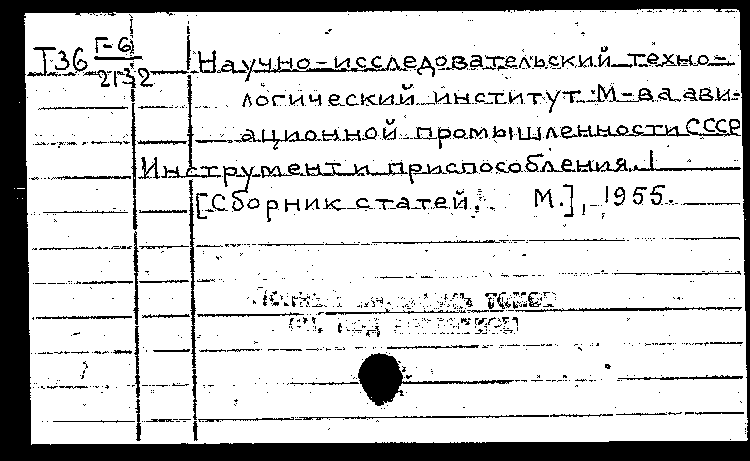 Т36 Г-6
2132
Научно-исследовательский техно-
логический институт М-ва ави-
ационной промышленности СССР
Инструмент и приспособления.
[Сборник статей. М.], 1955.
томов
см. под